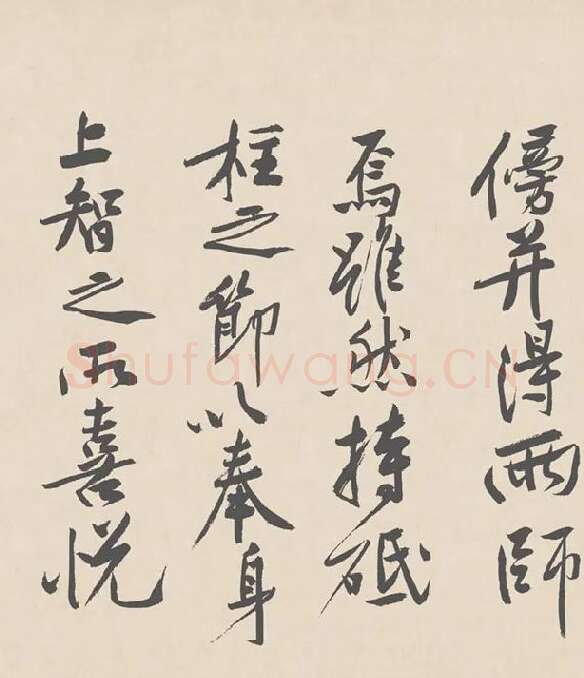 傍并得两師
焉雖然持砥
柱之節以奉身
上智之所喜悦
Shufawang.CN